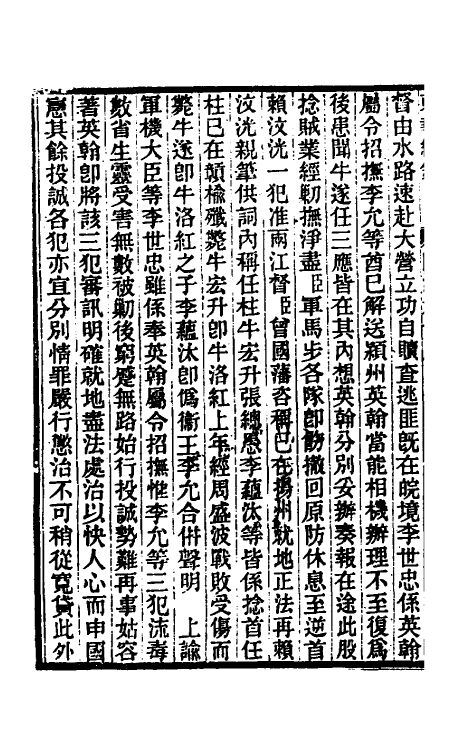 督由水路速赴大營立功自贖查逃匪既在皖境李世忠係英翰
屬令招撫李允等酋已解送潁州英翰當能相機辦理不至復爲
後患聞牛遂任三應皆在其內想英翰分別妥辦奏報在途此股
捻賊業經勦撫淨盡臣軍馬步各隊卽飭撤回原防休息至逆首
賴汶洸一犯准兩江督臣曾國藩咨稱已在揚州就地正法再賴
汶洸親筆供詞內稱任柱牛宏升張總愚李蘊汰等皆係捻首任
柱已在贛榆殲斃牛宏升卽牛洛紅上年經周盛波戰敗受傷而
斃牛遂卽牛洛紅之子李蘊汰卽僞衞王李允合併聲明　上諭
軍機大臣等李世忠雖係奉英翰屬令招撫惟李允等三犯流毒
數省生靈受害無數被勦後窮蹙無路始行投誠勢難再事姑容
著英翰卽將該三犯審訊明確就地盡法處治以快人心而申國
憲其餘投誠各犯亦宜分別情罪嚴行懲治不可稍從寬貸此外